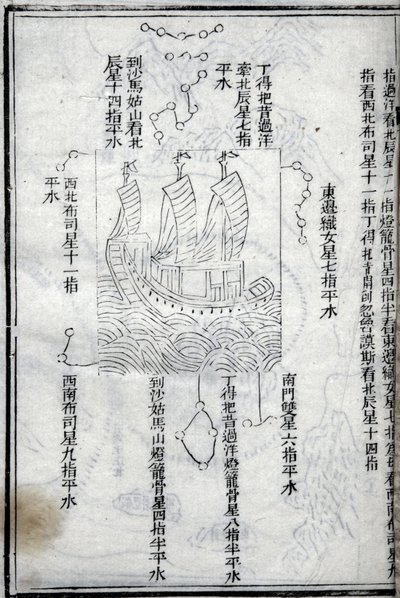 指過洋看北辰星十一指燈籠骨星四指半看東邊織女星七指為母看西南布司星九
指看西北布司星十一指丁得把昔開到忽魯謨斯看北辰星十四指
丁得把昔過洋
牽北辰星七指
平水
到沙馬姑山看北
辰星十四指平水
東邊織女星七指平水
西北布司星十一指
平水
南門雙星六指平水
丁得把昔過洋燈籠骨星八指半平水
到沙姑馬山燈籠骨星四指半平水
西南布司星九指平水